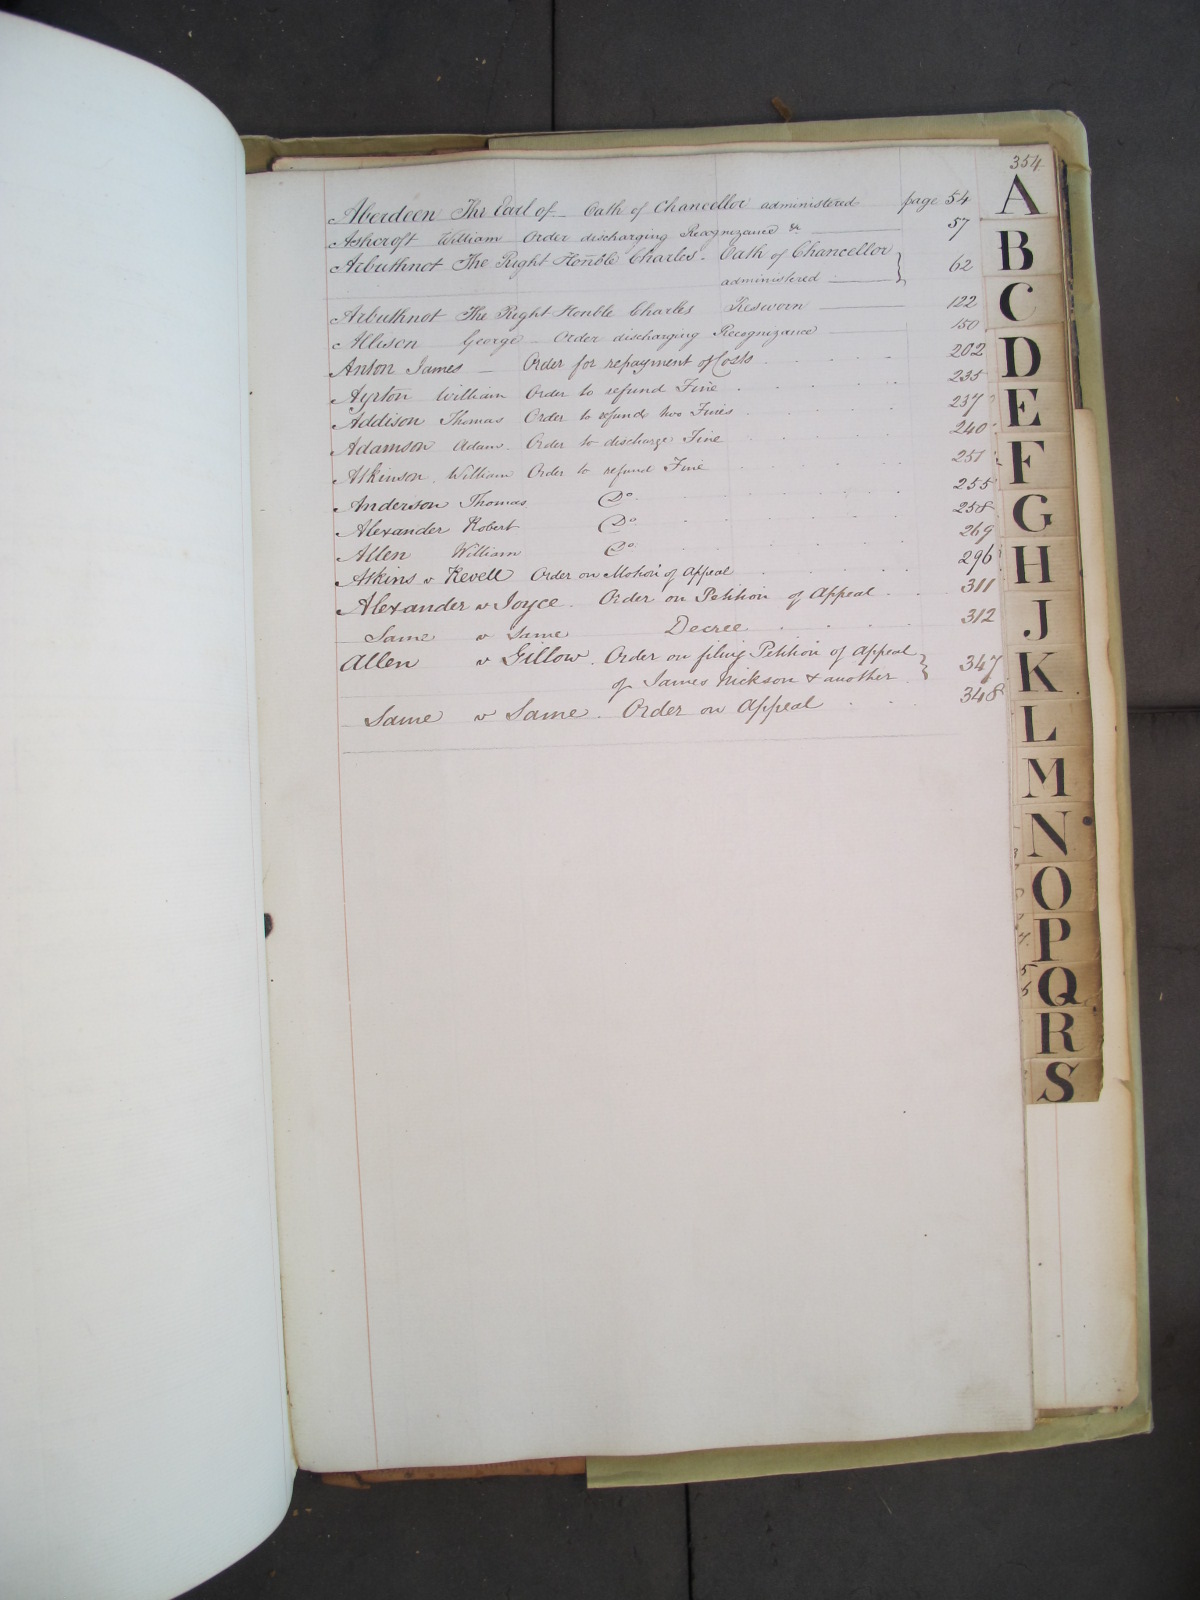 354
Aberdeen The Earl of – Oath of Chancellor administered page 54
Ashcroft William Order discharging Recognizance &c 57
Arbuthnot The Right Honble Charles – Oath of Chancellor
administered 62
Arbuthnot The Right Honble Charles Resworn 122
Allison George Order discharging Recognizance 150
Anton James – Order for repayment of Costs 202
Ayrton William Order to refund Fine 235
Addison Thomas Order to refund two Fines 237
Adamson Adam Order to discharge Fine 240
Atkinson William Order to refund Fine 251
Anderson Thomas Do 255
Alexander Robert Do 258
Allen William Do 269
Atkins v Revell Order on Motion of Appeal 296
Alexander v Joyce. Order on Petition of Appeal 311
Same v Same Decree 312
Allen v Gillow. Order on filing Petition of Appeal
of James Nickson & another 347
Same v Same. Order on Appeal 348
A
B
C
D
E
F
G
H
J
K
L
M
N
O
P
Q
R
S